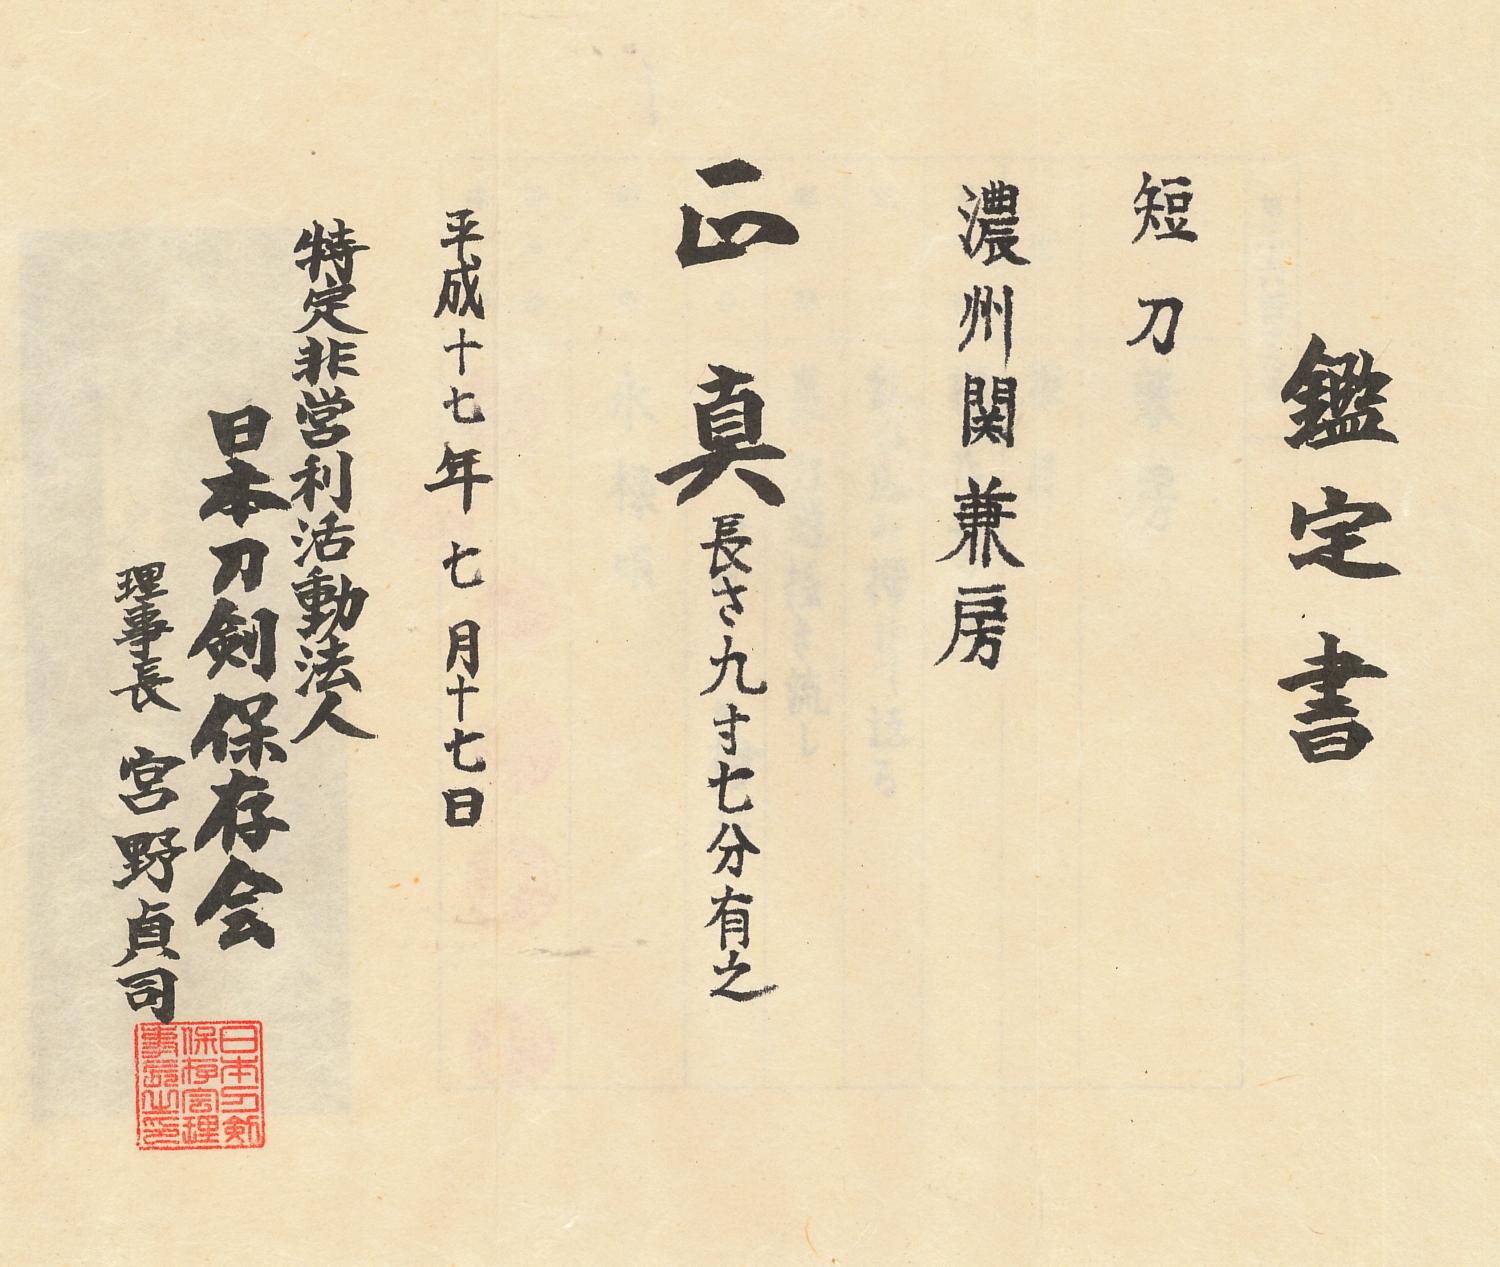 鑑定書
短刀
濃州関兼房
正真 長さ九寸七分有之
平成十七年七月十七日
特定非営利活動法人
日本刀剣保存会
理事長 宮野貞司
日本刀剣
保存会理
事長之印